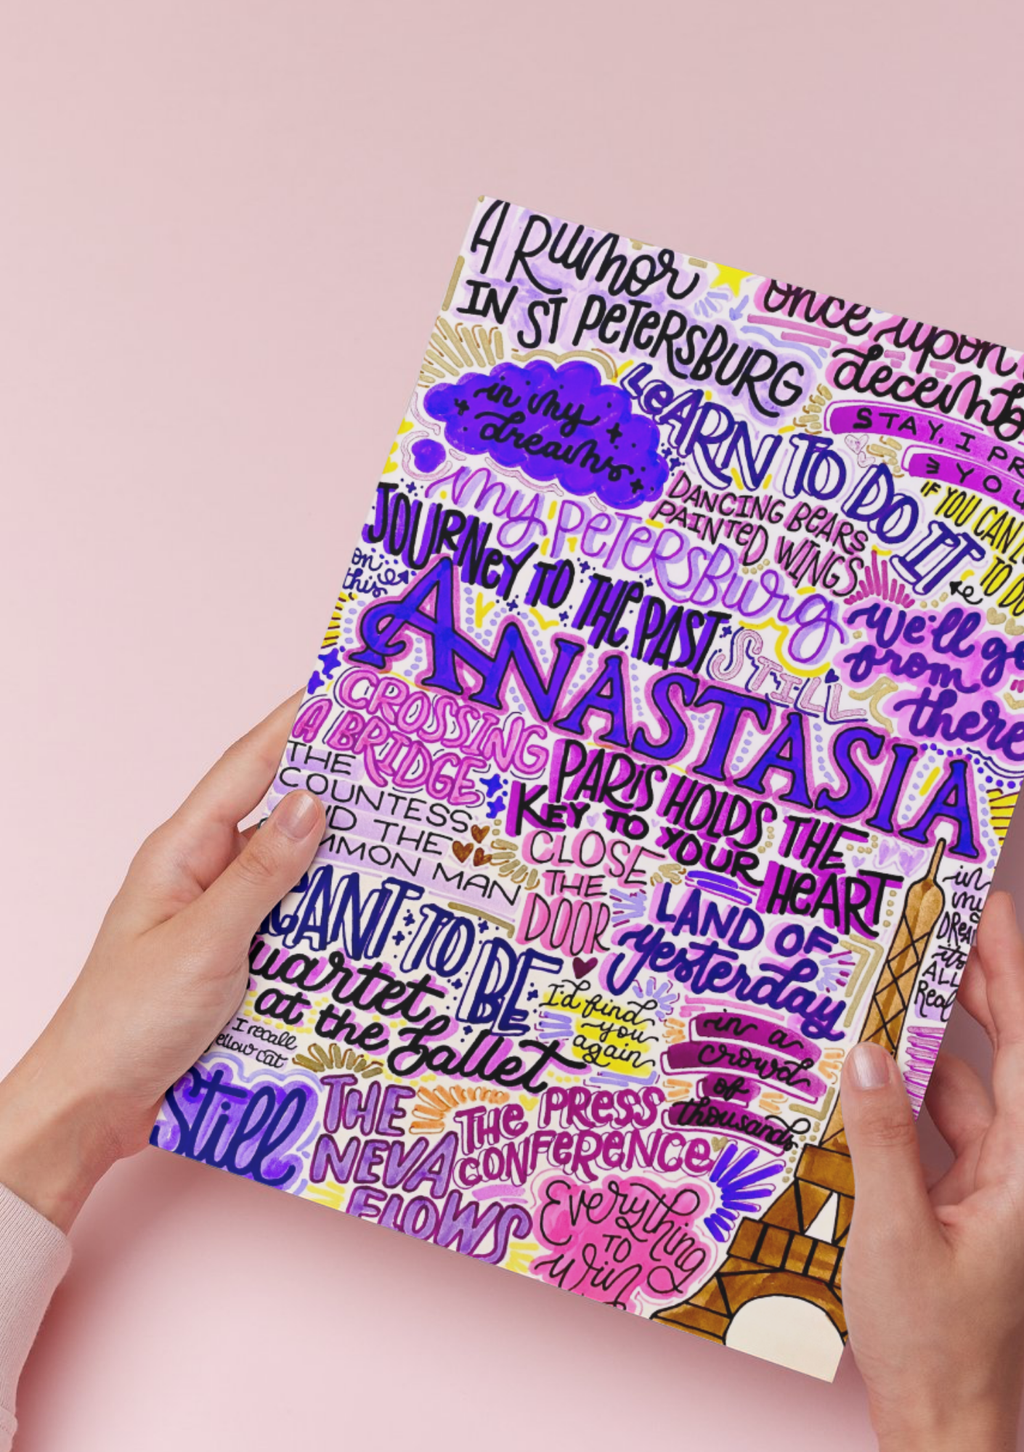 A Rumor
IN ST PETERSBURG
once upon
decemb
STAY, I PR
YOU
in my
dreams
LeARN TO DO IT
IF YOU CAN
TO DO
DANCING BEARS
PAINTED WINGS
my PETERSBurg
JOURNey TO THE PAST
on
this
We'll go
from
there
STILL
ANASTASIA
CROSSING
A BRIDGE
THE
COUNTESS
THE
MMON MAN
PARIS HOLDS THE
KEY TO YOUR HEART
CLOSE
THE
DOOR
LAND OF
yesterday
in
my
DREA
its
ALL
Real
CANT TO BE
uartet
at the ballet
I'd find
you
again
in a
crowd
of
thousands
I recall
ellow cat
Still
THE
NEVA
FLOWS
THE PRESS
CONFERENCE
Everything
TO
win